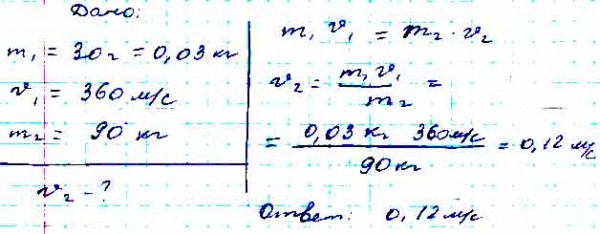 Дано:
m₁ = 30 г = 0,03 кг
v₁ = 360 м/с
m₂ = 90 кг
v₂ - ?
m₁ v₁ = m₂ · v₂
v₂ = m₁ v₁ / m₂ =
= 0,03 кг 360 м/с / 90 кг = 0,12 м/с
Ответ: 0,12 м/с